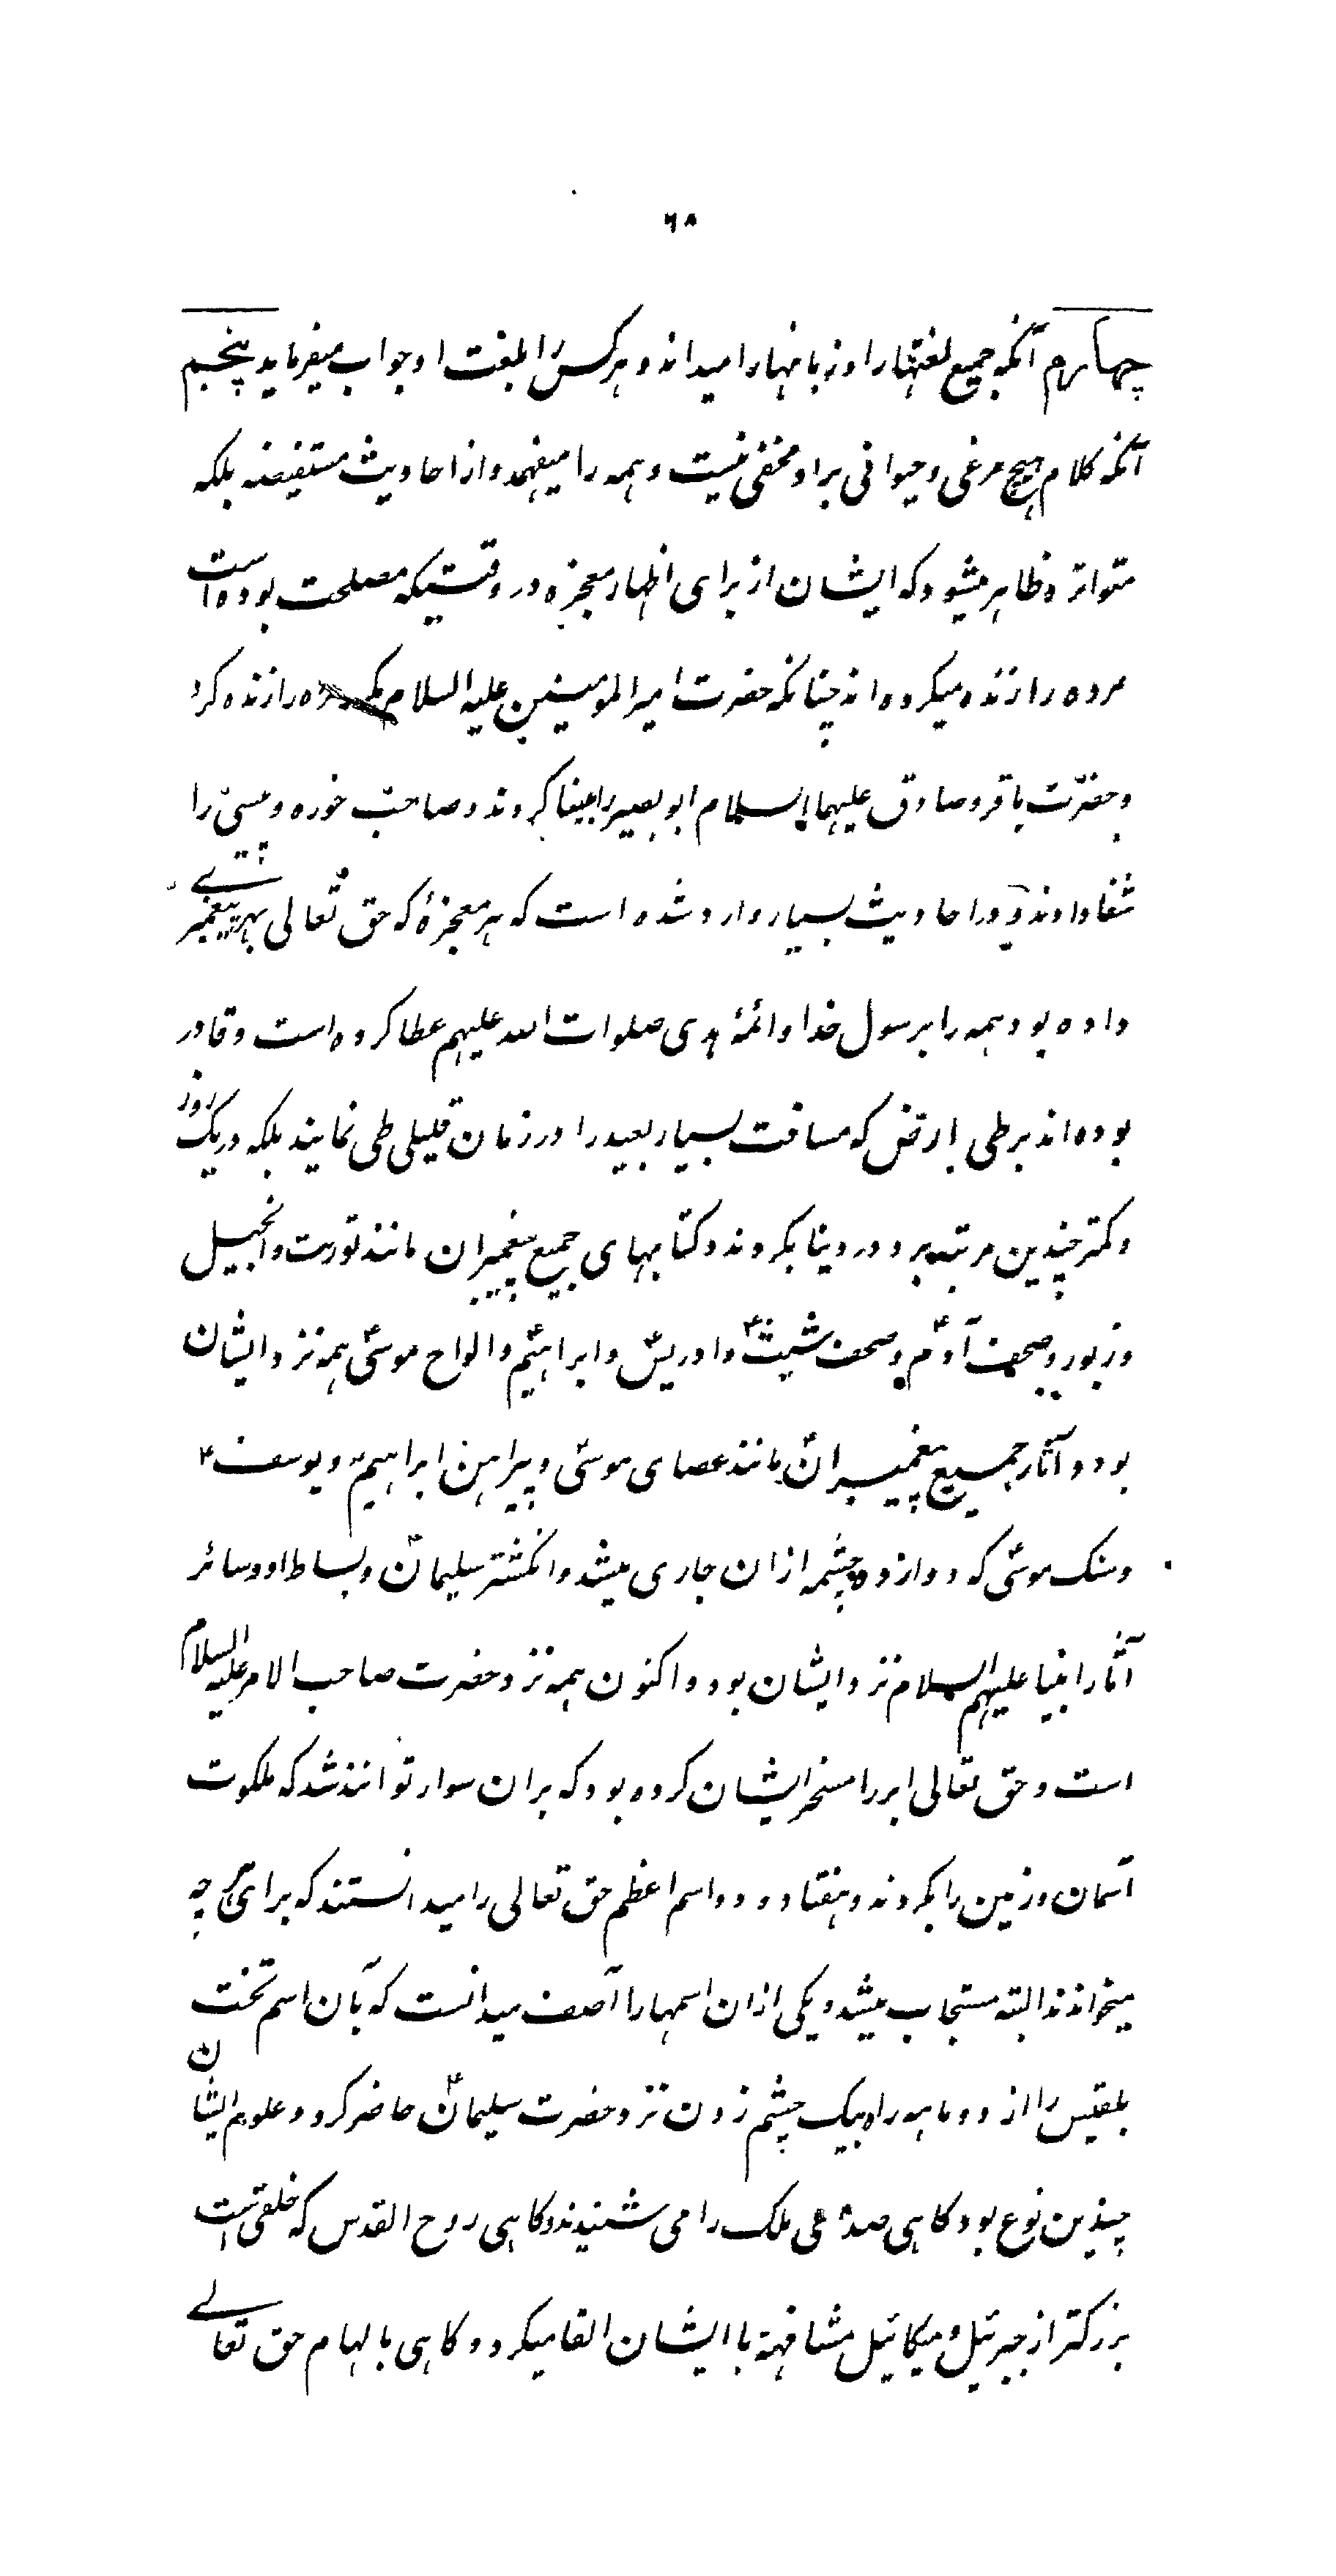 ٦٨
چهارم آنکه جمیع لغتها را و زبانها را میداند و هر کس را بلغت او جواب میفرماید پنجم
آنکه کلام هیچ مرغی و حیوانی بر او مخفی نیست و همه را میفهمد و از احادیث مستفیضه بلکه
متواتره ظاهر میشود که ایشان از برای اظهار معجزه در وقتیکه مصلحت بوده است
مرده را زنده میکرده اند چنانکه حضرت امیر المومنین علیه السلام را زنده کرد
و حضرت باقر و صادق علیهما السلام ابو بصیر را بینا کردند و صاحب خوره و پیسی را
شفا دادند و در احادیث بسیار وارد شده است که هر معجزهٔ که حق تعالی بهر پیغمبرے
داده بود همه را برسول خدا و ائمهٔ هدی صلوات الله علیهم عطا کرده است و قادر
بوده اند بر طی ارض که مسافت بسیار بعید را در زمان قلیلی طی نمایند بلکه در یک روز
و کمتر چندین مرتبه بر دور دنیا بگردند و کتابهای جمیع پیغمبران مانند توریت و انجیل
و زبور و صحف آدمؑ و صحف شیثؑ و ادریسؑ و ابراهیمؑ و الواح موسیؑ همه نزد ایشان
بود و آثار جمیع پیغمبرانؑ مانند عصای موسیؑ و پیراهن ابراهیمؑ و یوسفؑ
و سنک موسیؑ که دوازده چشمه ازان جاری میشد و انکشتر سلیمانؑ و بساط او و سائر
آثار انبیا علیهم السلام نزد ایشان بود و اکنون همه نزد حضرت صاحب الامر علیه السلام
است و حق تعالی ابر را مسخر ایشان کرده بود که بران سوار توانند شد که ملکوت
آسمان و زمین را بگردند و هفتاد و دو اسم اعظم حق تعالی را میدانستند که برای هر چه
میخواندند البته مستجاب میشد و یکی ازان اسمها را آصف میدانست که بآن اسم تخت
بلقیس را از دو ماهه راه بیک چشم زدن نزد حضرت سلیمانؑ حاضر کرد و علوم ایشان
چندین نوع بود کاهی صدای ملک را می شنیدند و کاهی روح القدس که خلقی است
بزرکتر از جبرئیل و میکائیل مشافهة با ایشان القا میکرد و کاهی بالهام حق تعالے